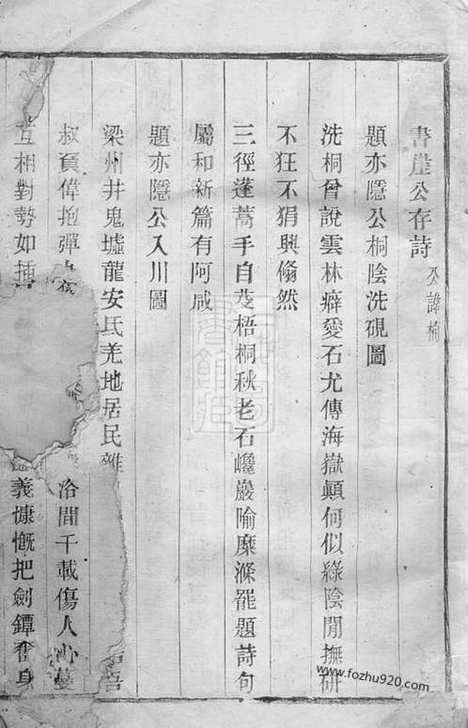 書崖公存詩 公諱楠
題亦隱公桐陰洗硯圖
洗桐曾說雲林癖愛石尤傳海嶽顛何似綠陰閒撫研
不狂不狷興翛然
三徑蓬蒿手自芟梧桐秋老石巉巖隃糜滌罷題詩句
屬和新篇有阿咸
題亦隱公入川圖
梁州井鬼墟龍安氐羌地居民雜 吾
叔負偉抱彈 洽間千載傷人心
互相對勢如插 義慷慨把劍鐔奮身
www.fozhu920.com